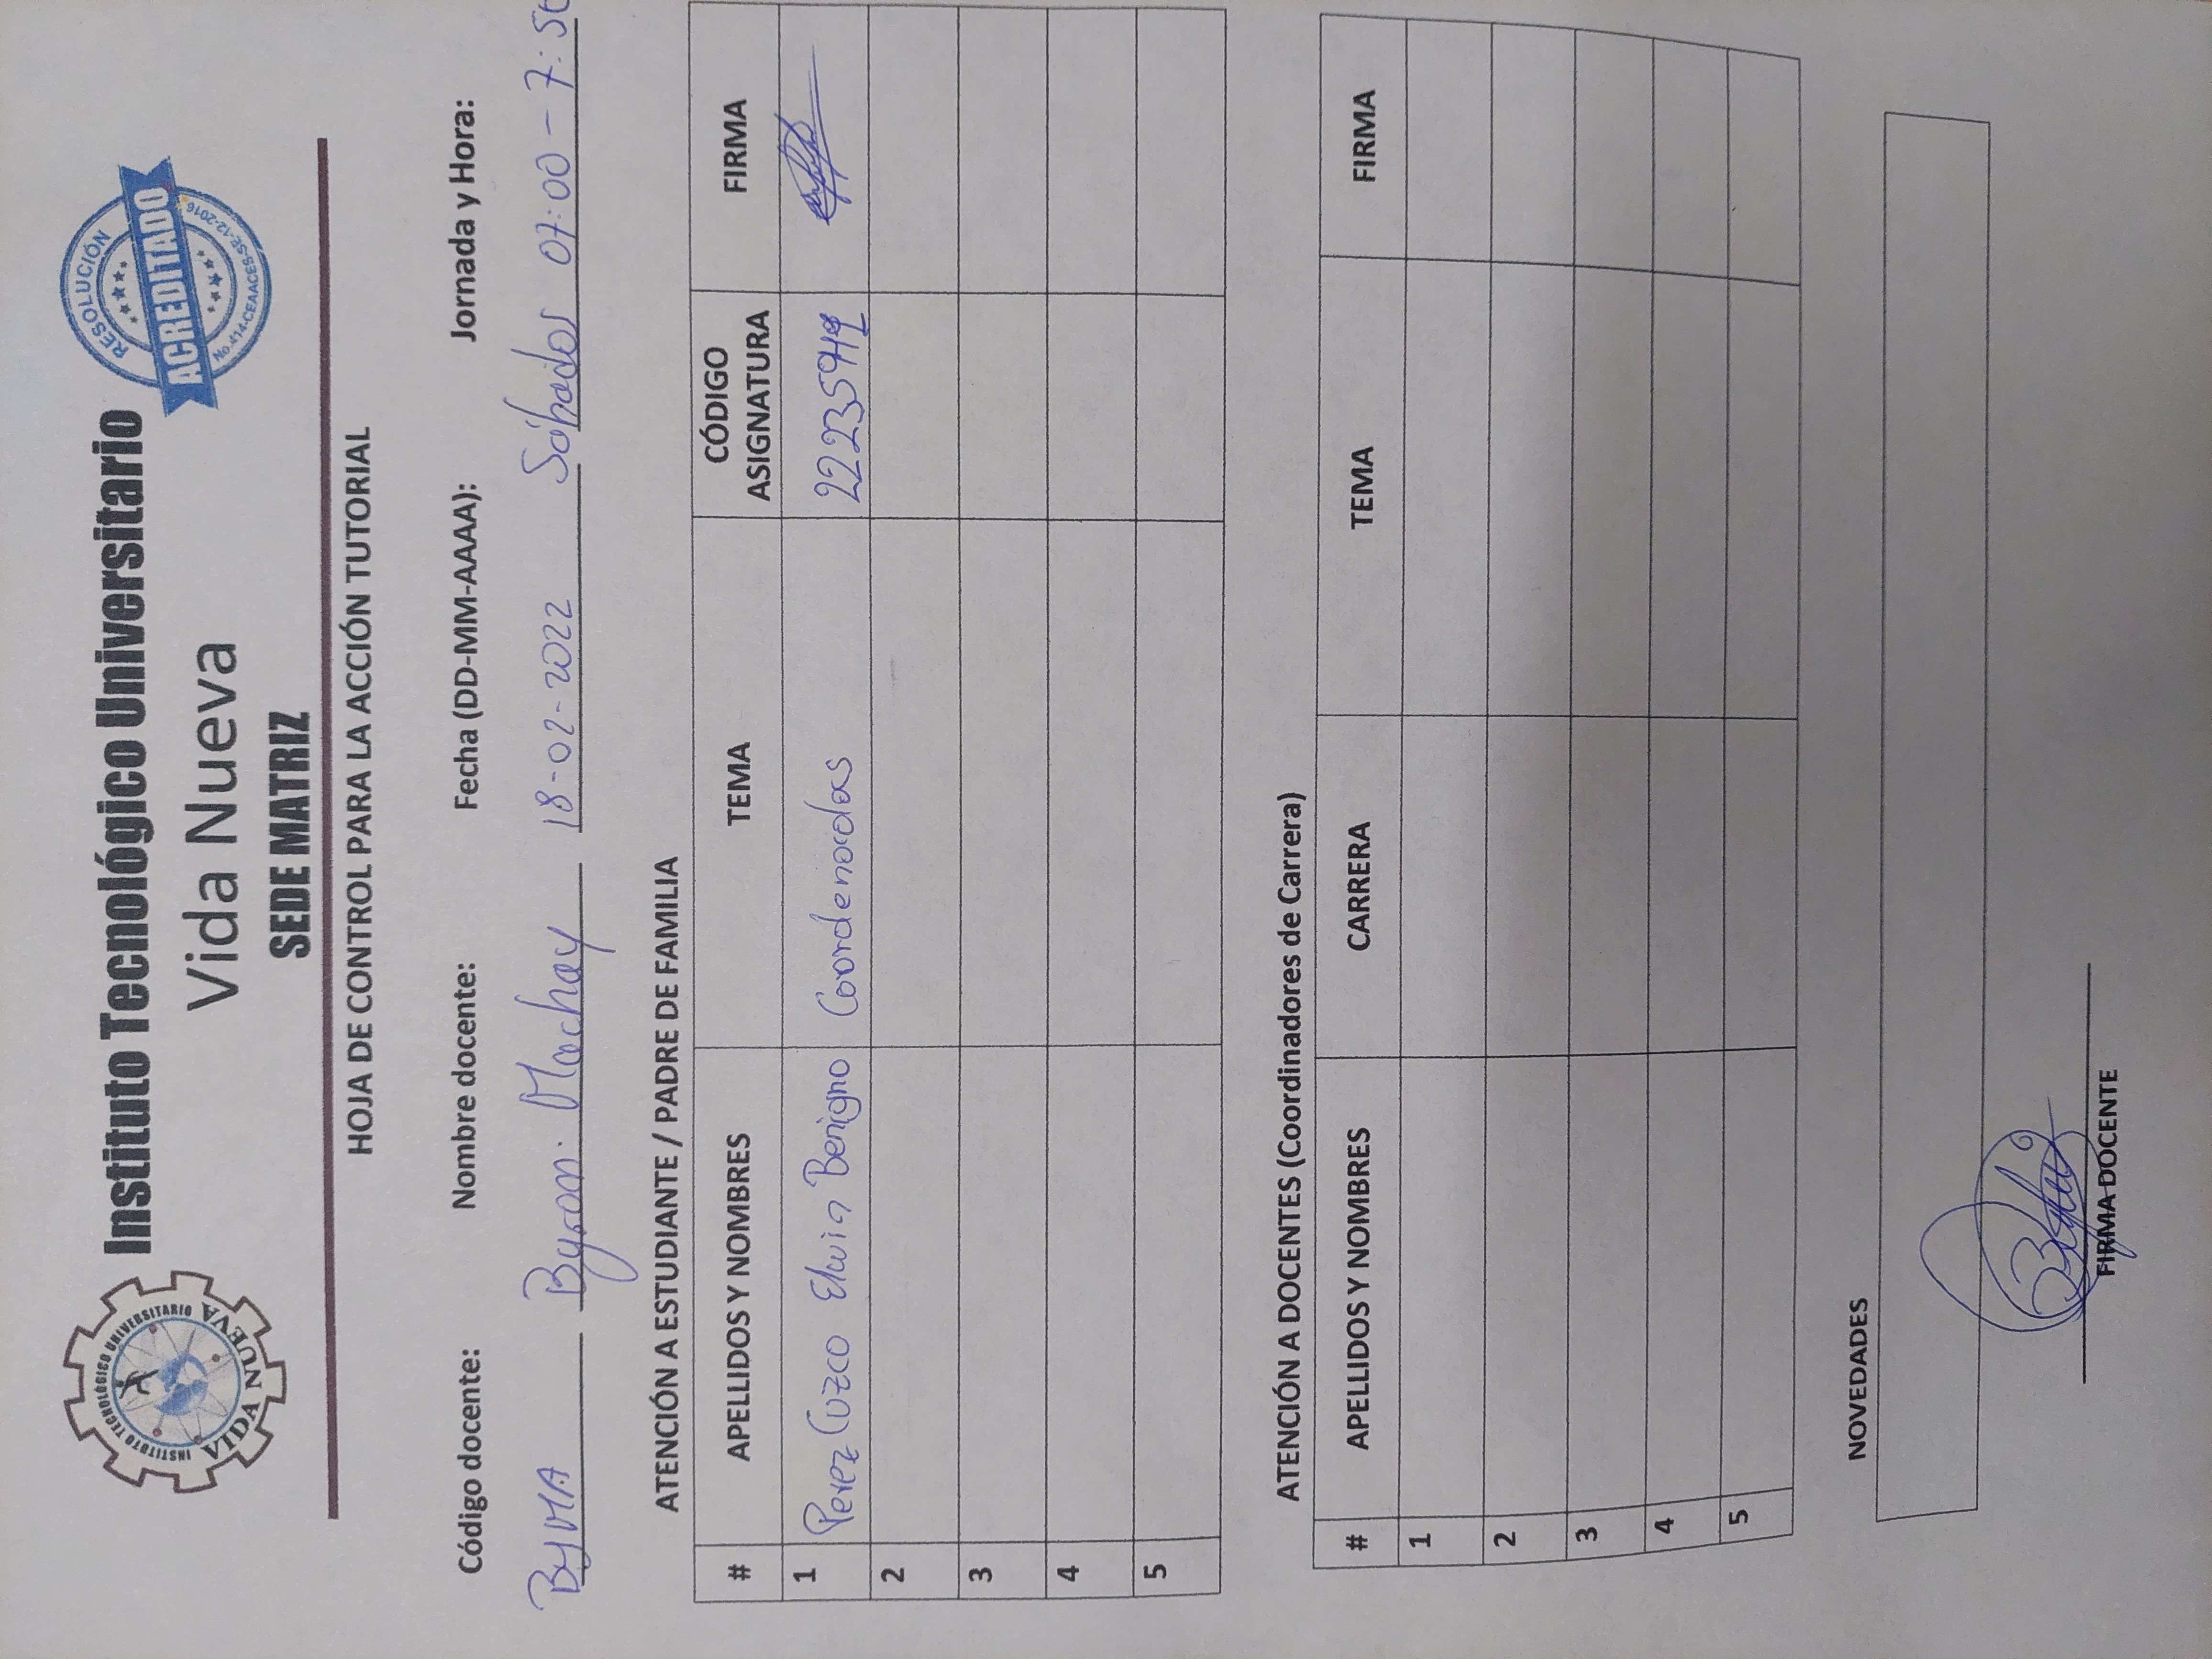 INSTITUTO TECNOLÓGICO UNIVERSITARIO
VIDA NUEVA
Instituto Tecnológico Universitario
Vida Nueva
SEDE MATRIZ
RESOLUCIÓN
ACREDITADO
No.414-CEAACES-SE-12-2016
HOJA DE CONTROL PARA LA ACCIÓN TUTORIAL
Código docente: Nombre docente: Fecha (DD-MM-AAAA): Jornada y Hora:
ByMA Byron Machay 18-02-2022 Sábados 07:00 - 7:50
ATENCIÓN A ESTUDIANTE / PADRE DE FAMILIA
# APELLIDOS Y NOMBRES TEMA CÓDIGO ASIGNATURA FIRMA
1 Perez Cuzco Elwin Benigno Coordenadas
2
3
4
5
ATENCIÓN A DOCENTES (Coordinadores de Carrera)
# APELLIDOS Y NOMBRES CARRERA TEMA FIRMA
1
2
3
4
5
NOVEDADES
FIRMA DOCENTE